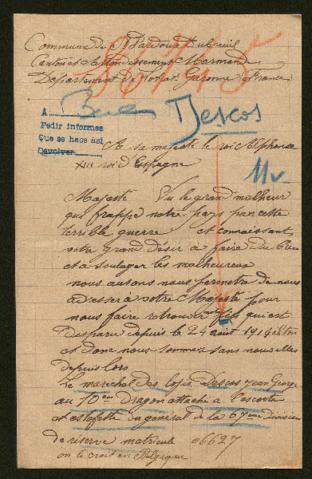 Commune de St Pardoux du Breuil
Canton et arrondissement Marmande
Département de Lot et Garonne France
A
Pedir informes
Que se haga así
Devolver
Descos
11 v.
A sa majesté le roi Alphonse
XIII roi d'Espagne
Majesté Vu le grand malheur
qui frappe notre pays par cette
terrible guerre et connaissant
votre Grand désir à faire du bien
et à soulager les malheureux
nous autons nous permetre de nous
adresser à votre Majesté pour
nous faire retrouver fils qui est
Disparu depuis le 24 août 1914
et dont nous sommes sans nouvelles
depuis lors
Le maréchal des logis Descos Jean George
au 10em Dragon attaché à l'escorte
et estafette du général de la 67em Division
de réserve matricule 06627
on le croit en Belgique